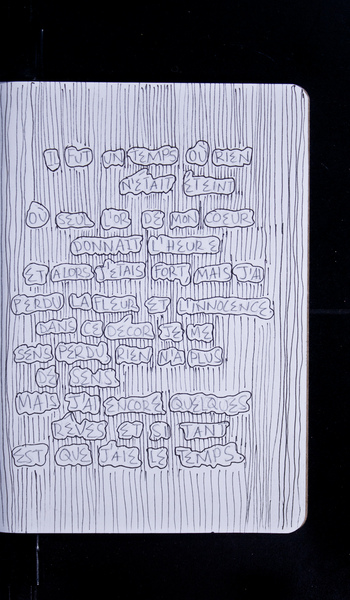 I FUT UN TEMPS OÙ RIEN
N'ÉTAIT ÉTEINT
OÙ SEUL L'OR DE MON COEUR
DONNAIT L'HEURE
ET ALORS J'ÉTAIS FORT MAIS J'AI
PERDU LA FLEUR ET L'INNOCENCE
DANS CE DECOR JE ME
SENS PERDU RIEN N'A PLUS
DE SENS
MAIS J'AI ENCORE QUELQUES
REVES ET SI TANT
EST QUE J'AIE LE TEMPS